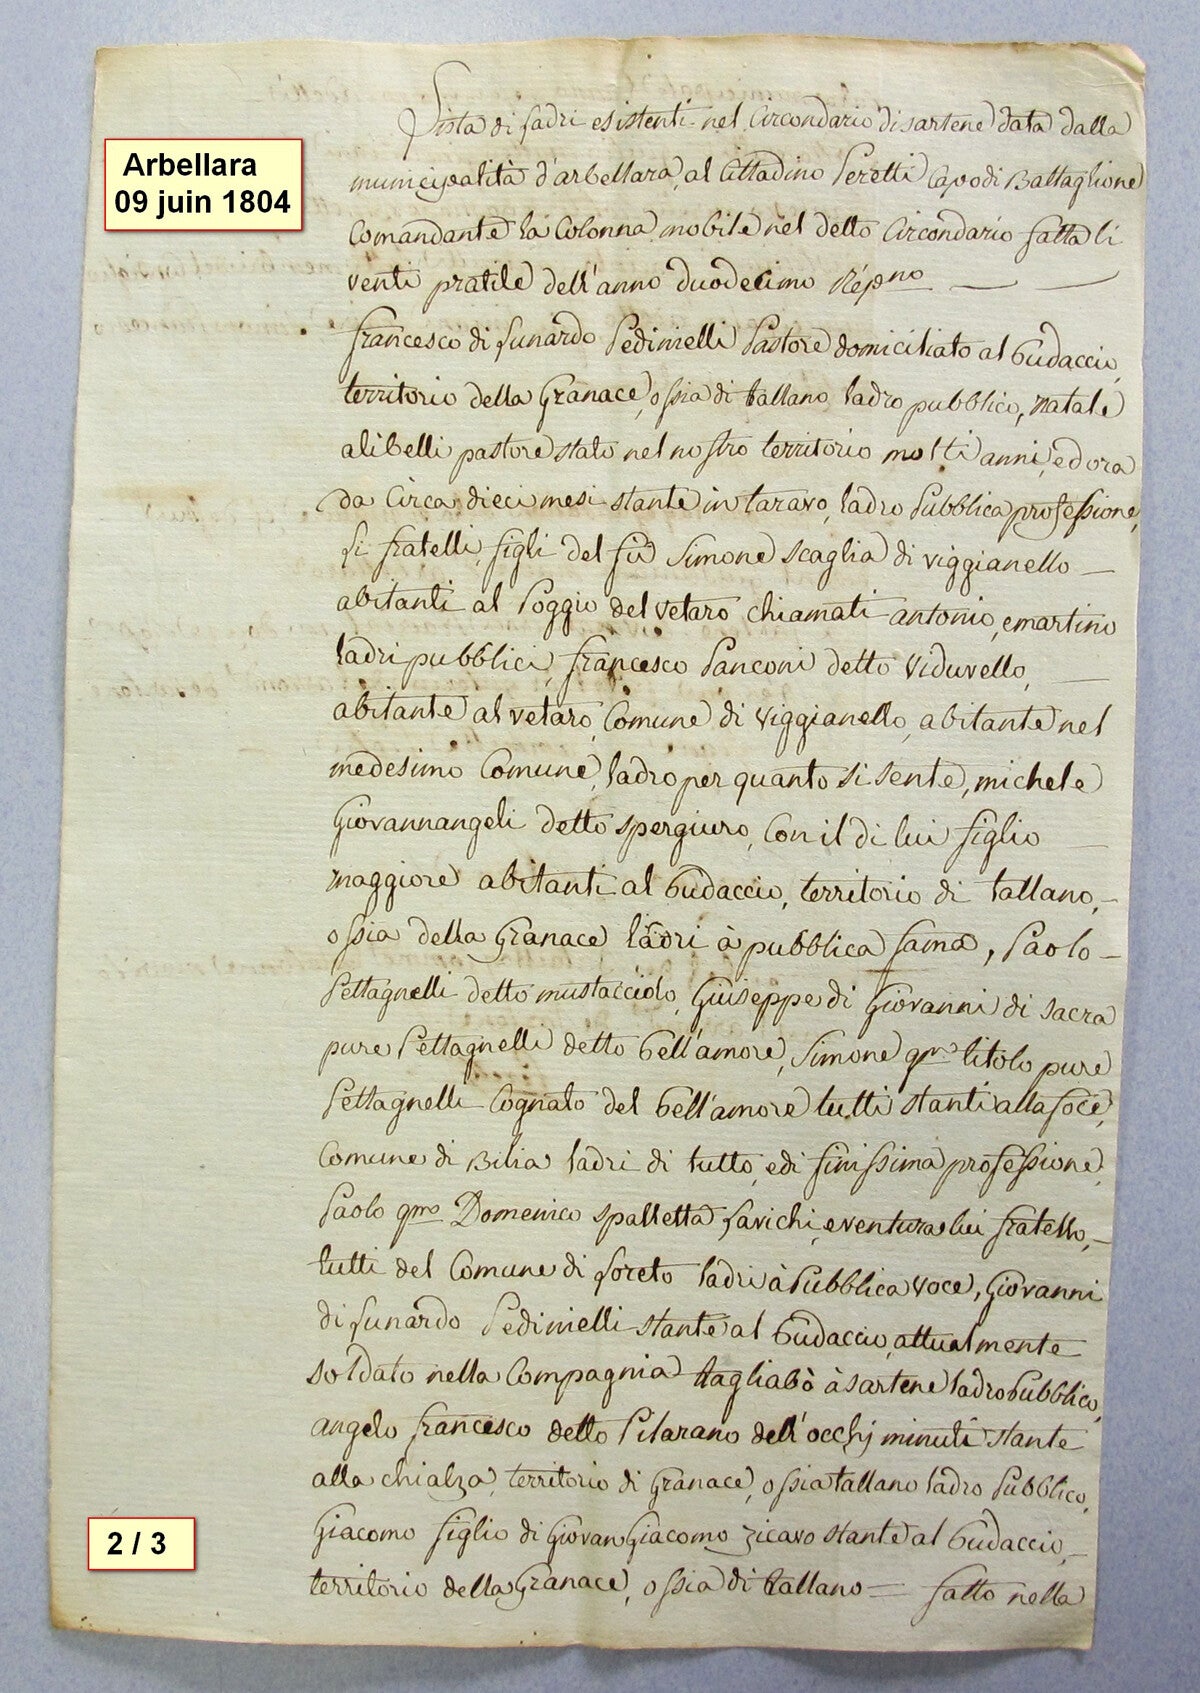 Arbellara
09 juin 1804
Lista di ladri esistenti nel Circondario di sartene data dalla
municipalità d'arbellara, al Cittadino Peretti Capo di Battaglione
Comandante la Colonna mobile nel detto Circondario fatta li
venti pratile dell'anno duodecimo Répno
francesco di Lunardo Pedinielli Pastore domiciliato al Budaccio,
territorio della Granace, ossia di tallano, ladro pubblico, natale
alibelli pastore stato nel nostro territorio molti anni, ed ora
da Circa dieci mesi stante in taravo, ladro Pubblica professione,
Li fratelli, figli del fù Simone Scaglia di viggianello
abitanti al Poggio del vetaro chiamati antonio, e martino
ladri pubblici, francesco Panconi detto Viduvello,
abitante al vetaro, Comune di viggianello, abitante nel
medesimo Comune, ladro per quanto si sente, michele
Giovannangeli detto spergiuro, Con il di lui figlio
maggiore abitanti al Budaccio, territorio di tallano,
ossia della Granace ladri à pubblica fama, Paolo
Pettagnelli detto mustacciolo, Giuseppe di Giovanni di sacra
pure Pettagnelli detto Bell'amore, Simone qm titolo pure
Pettagnelli Cognato del Bell'amore tutti stanti alla foce,
Comune di Bilia ladri di tutto, e di finissima professione,
Paolo qmo Domenico spalletta Lavichi, e ventura lui fratello,
tutti del Comune di Loreto ladri à Pubblica voce, Giovanni
di Lunardo Pedinielli stante al Budaccio, attualmente
soldato nella Compagnia tagliabò à sartene ladro Pubblico,
angelo francesco detto Pilarano dell'occhj minuti stante
alla chialza, territorio di Granace, ossia tallano ladro Pubblico,
Giacomo figlio di Giovan Giacomo zicavo stante al Budaccio,
territorio della Granace, ossia di tallano = fatto nella
2 / 3